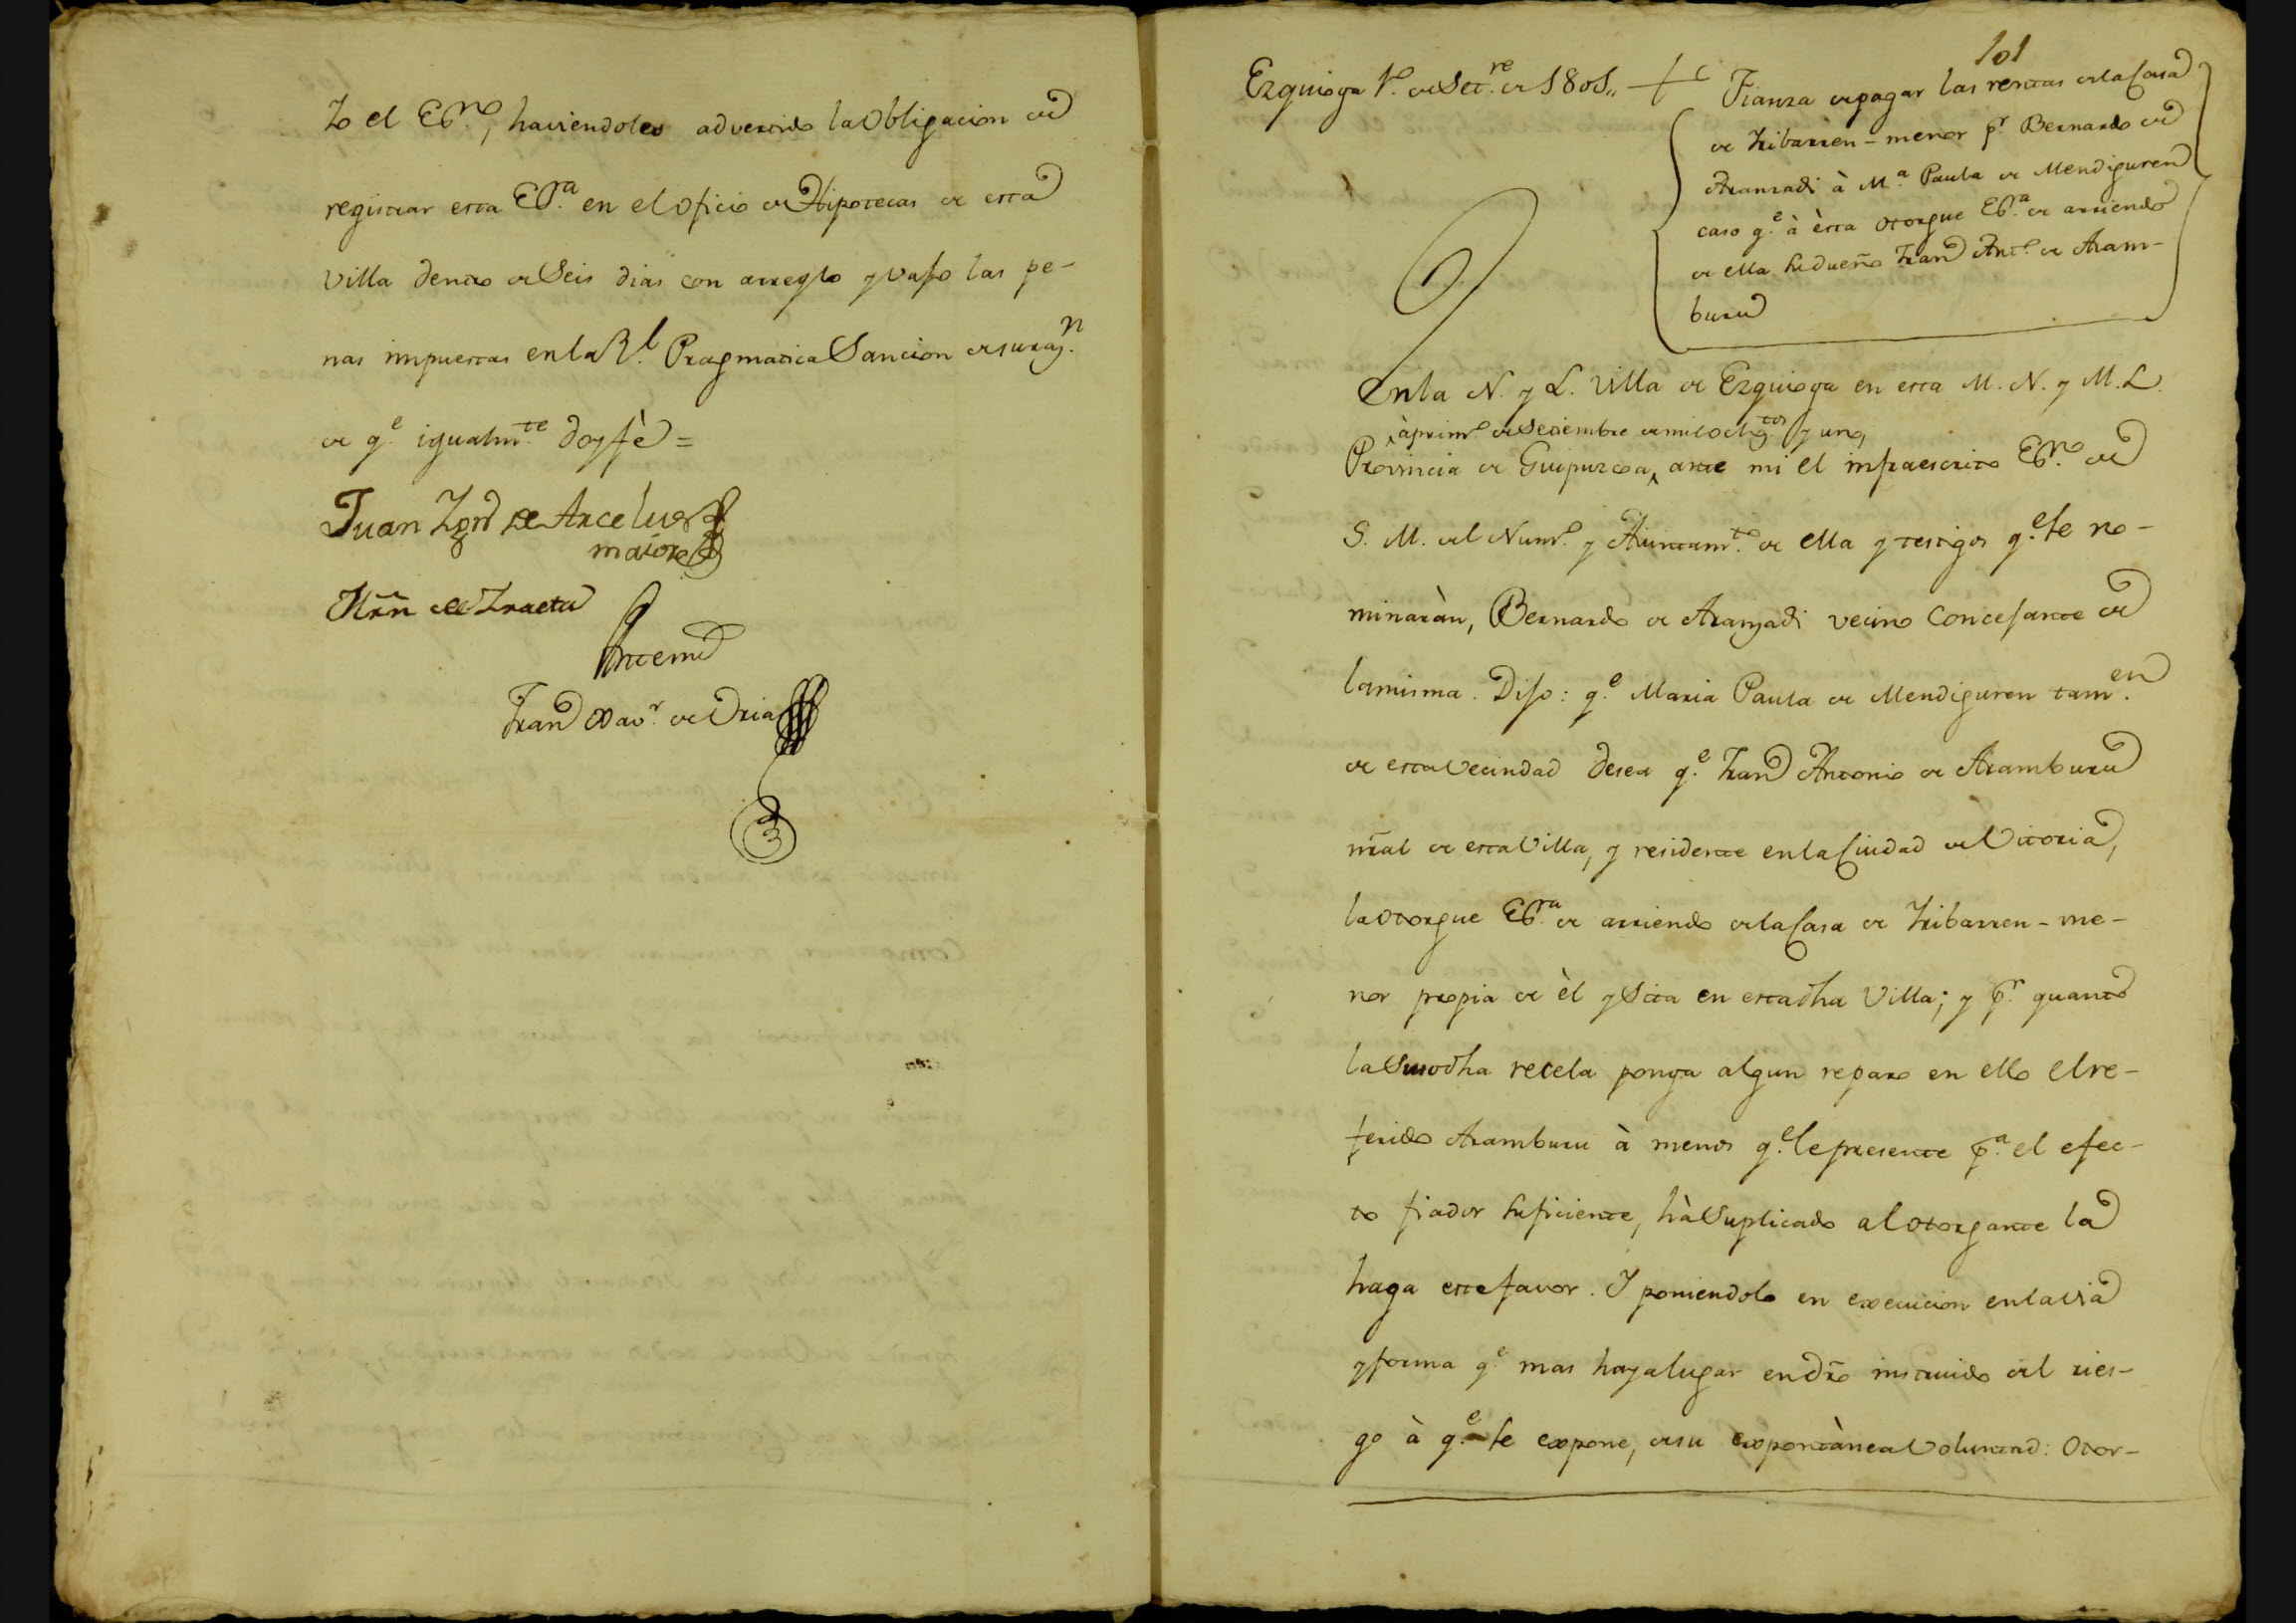 Yo el Essno, haviendoles advertido la obligacion de
registrar esta Essra en el oficio de Hipotecas de esta
villa dentro de seis dias con arreglo y vajo las pe-
nas impuestas en la Rl. Pragmatica Sancion de su razn.
de qe igualmte doy fè =
Juan Ygno de Arcelus
maiora
Mrn de Yraeta
Antemi
Franco Xavr. de Oria
101
Ezquioga 1º. de Setre. de 1801,,
Fianza de pagar las rentas de la Casa
de Iribarren-menor pr. Bernardo de
Aranzadi à Ma. Paula de Mendiguren
caso qe. à èsta otorgue Essra. de arriendo
de ella su dueño Franco Anto. de Aram-
buru
En la N. y L. Villa de Ezquioga en esta M. N. y M. L.
à primo. de Setiembre de mil ochotos. y uno,
Provincia de Guipuzcoa, ante mi el infraescrito Essno. de
S. M. del Numo. y Aiuntamto. de ella y testigos qe. se no-
minaràn, Bernardo de Aranzadi vecino Concejante de
la misma. Dijo: qe. Maria Paula de Mendiguren tamen.
de esta vecindad desea qe. Franco Antonio de Aramburu
nral de esta Villa, y residente en la Ciudad de Vitoria,
la otorgue Essra. de arriendo de la Casa de Iribarren-me-
nor propia de èl y sita en esta dha Villa; y pr. quanto
la susodha recela ponga algun reparo en ello el re-
ferido Aramburu à menos qe. le presente pa. el efec-
to fiador suficiente, hà suplicado al otorgante la
haga este favor. Y poniendolo en execucion en la via
y forma qe. mas haya lugar en dro instruido del ries-
go à qe. se expone, de su expontànea voluntad: Otor-